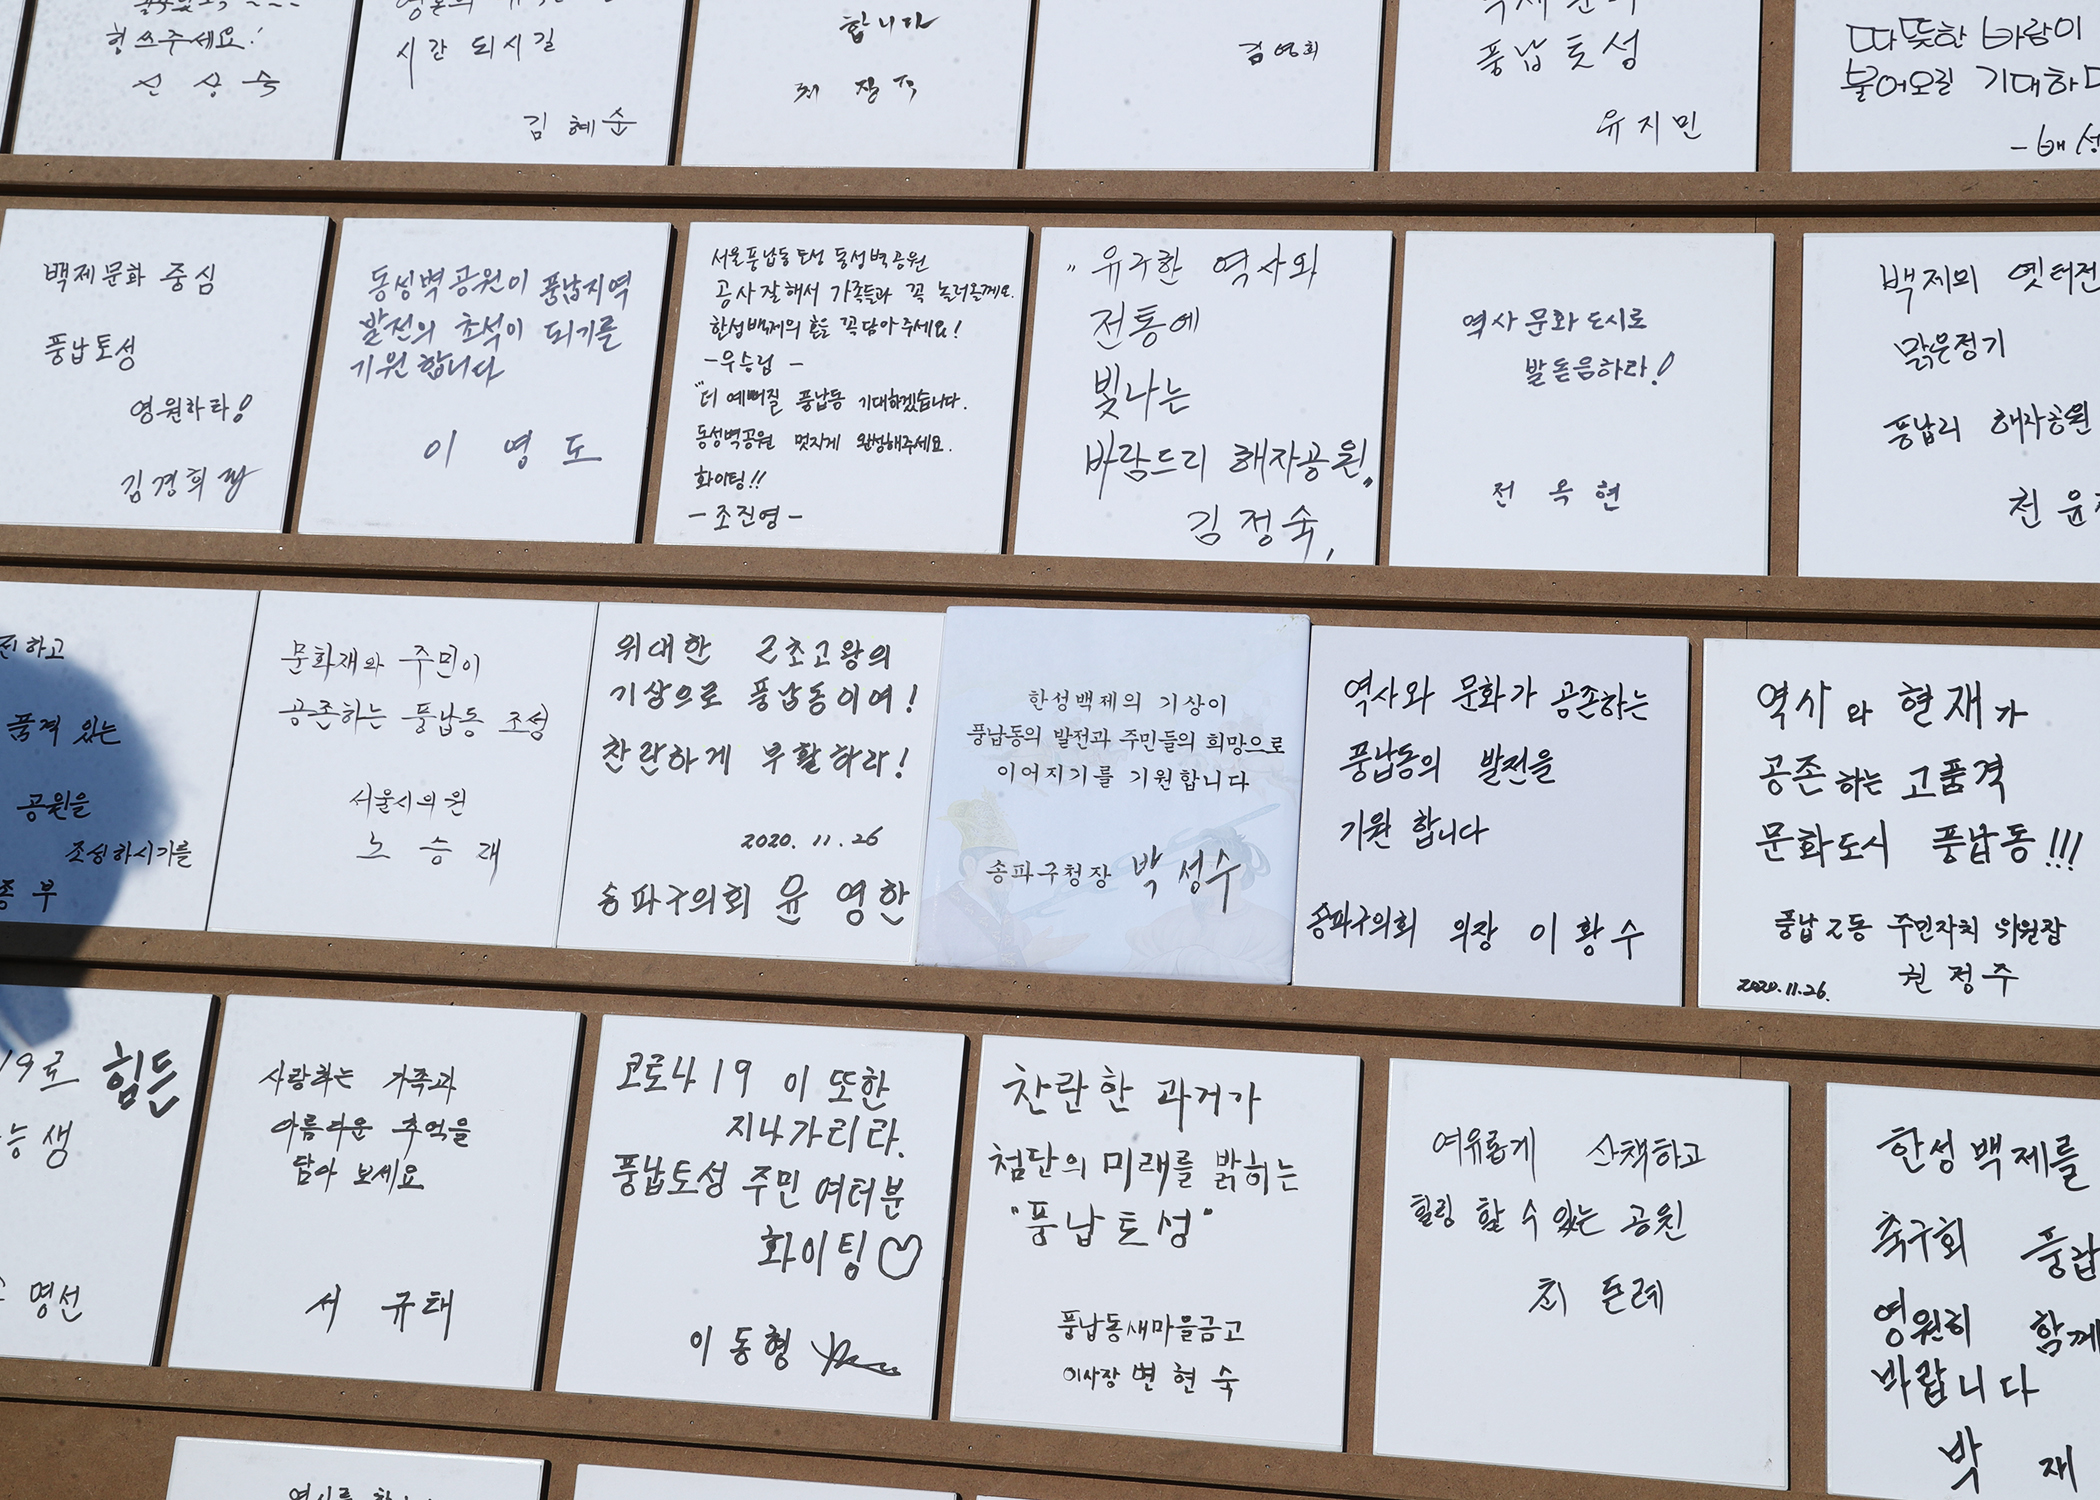 힘쓰주세요!
신 상 숙
시간 되시길
김 혜 순
합니다
최 장 주
김영희
풍납토성
유지민
따뜻한 바람이
불어오길 기대하
백제문화 중심
풍납토성
영원하라!
김경희
동성벽공원이 풍납지역
발전의 초석이 되기를
기원합니다
이 명 도
서울풍납동토성 동성벽공원
공사잘해서 가족들과 꼭 놀러올게요.
한성백제의 혼을 꼭담아주세요!
-우승럽 -
"더 예뻐질 풍납동 기대하겠습니다.
동성벽공원 멋지게 완성해주세요.
화이팅!!
-조진영-
"유구한 역사와
전통에
빛나는
바람드리 해자공원"
김정숙,
역사문화도시로
발돋음하라!
전 옥 현
백제의 옛터전
맑은정기
풍납리 해자공원
천 윤
전하고
품격 있는
공원을
조성하시기를
종 부
문화재와 주민이
공존하는 풍납동 조성
서울시의원
노 승 재
위대한 근초고왕의
기상으로 풍납동이여!
찬란하게 부활하라!
2020. 11. 26
송파구의회 윤 영 한
한성백제의 기상이
풍납동의 발전과 주민들의 희망으로
이어지기를 기원합니다
송파구청장 박성수
역사와 문화가 공존하는
풍납동의 발전을
기원 합니다
송파구의회 의장 이 황 수
역사와 현재가
공존하는 고품격
문화도시 풍납동!!!
풍납2동 주민자치 위원장
2020.11.26. 권 정 주
19로 힘든
능생
명선
사랑하는 가족과
아름다운 추억을
담아 보세요
서 규 태
코로나19 이 또한
지나가리라.
풍납토성 주민 여러분
화이팅♡
이동형
찬란한 과거가
첨단의 미래를 밝히는
"풍납토성"
풍납동새마을금고
이사장 변 현 숙
여유롭게 산책하고
힐링 할 수 있는 공원
최 든례
한성백제를
축구회 풍납
영원히 함께
바랍니다
박 재